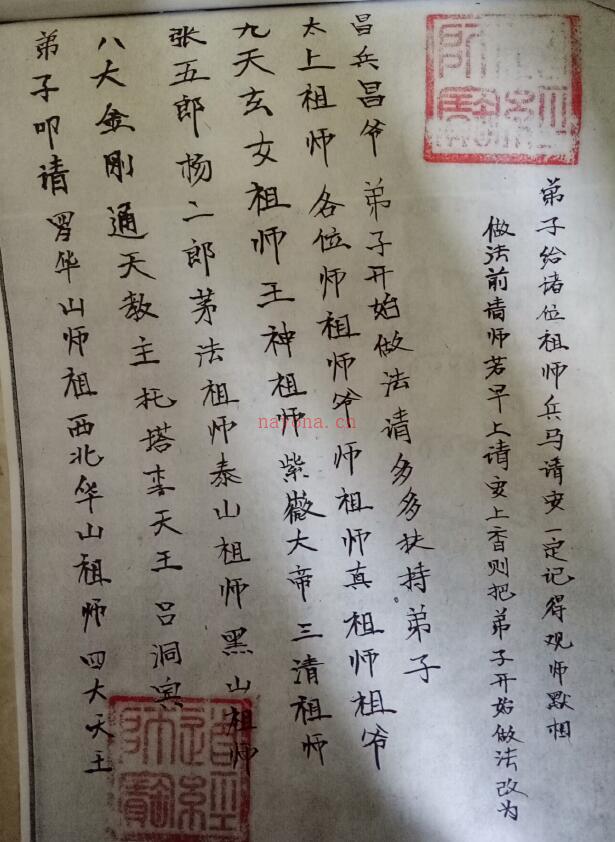 弟子叩请 罗华山师祖 西北华山祖师 四大天王
八大金刚 通天教主 托塔李天王 吕洞宾
张五郎 杨二郎 茅法祖师 泰山祖师 黑山祖师
九天玄女祖师 王神祖师 紫薇大帝 三清祖师
太上祖师 各位师祖师爷 师祖师真 祖师祖爷
昌兵昌爷 弟子开始做法请多多扶持弟子
做法前请师若早上请安上香则把弟子开始做法改为
弟子给诸位祖师兵马请安一定记得观师默相
道經師寶
道經師寶
nayona.cn